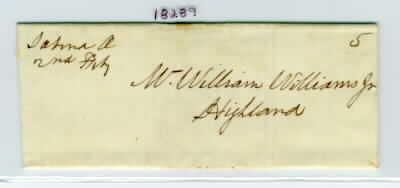 18289
Salina O
2nd Feby
5
Mr. William Williams Jr
Highland